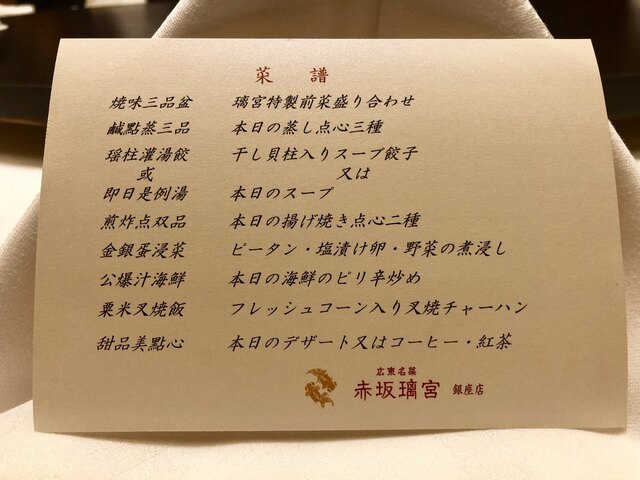 菜 譜
焼味三品盆 璃宮特製前菜盛り合わせ
鹹點蒸三品 本日の蒸し点心三種
瑶柱灌湯餃 干し貝柱入りスープ餃子
或 又は
即日是例湯 本日のスープ
煎炸点双品 本日の揚げ焼き点心二種
金銀蛋浸菜 ピータン・塩漬け卵・野菜の煮浸し
公爆汁海鮮 本日の海鮮のピリ辛炒め
粟米叉焼飯 フレッシュコーン入り叉焼チャーハン
甜品美點心 本日のデザート又はコーヒー・紅茶
広東名菜
赤坂璃宮 銀座店